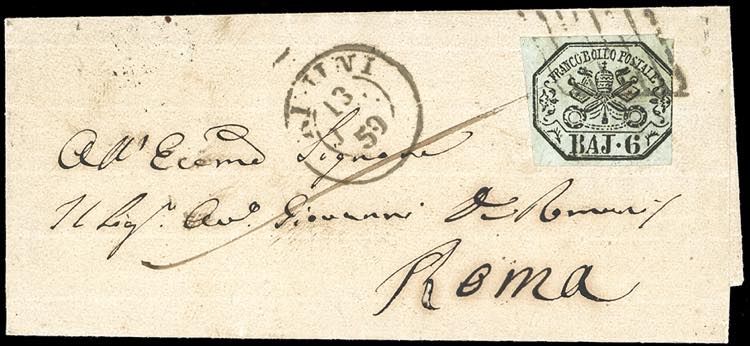 FRANCO BOLLO POSTALE
BAJ·6
13
59
All' Eccmo Signore
Il Sig. Avv. Giovanni De
Roma